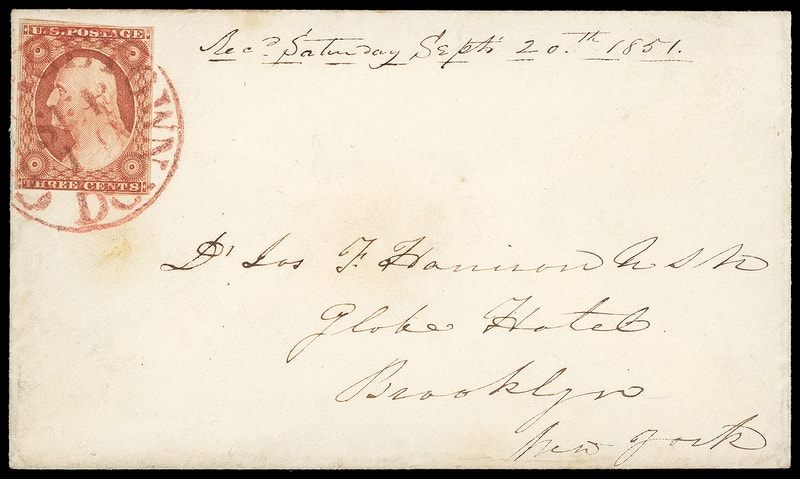 Recd Saturday Sept 20.th 1851.
U.S. POSTAGE
THREE CENTS
D.C.
Dr Jos F. Harrison U S N
Globe Hotel
Brooklyn
New York